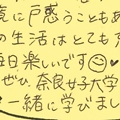 境に戸惑うこともあ
の生活はとても充
毎日楽しいです
ぜひ、奈良女子大学
一緒に学びまし